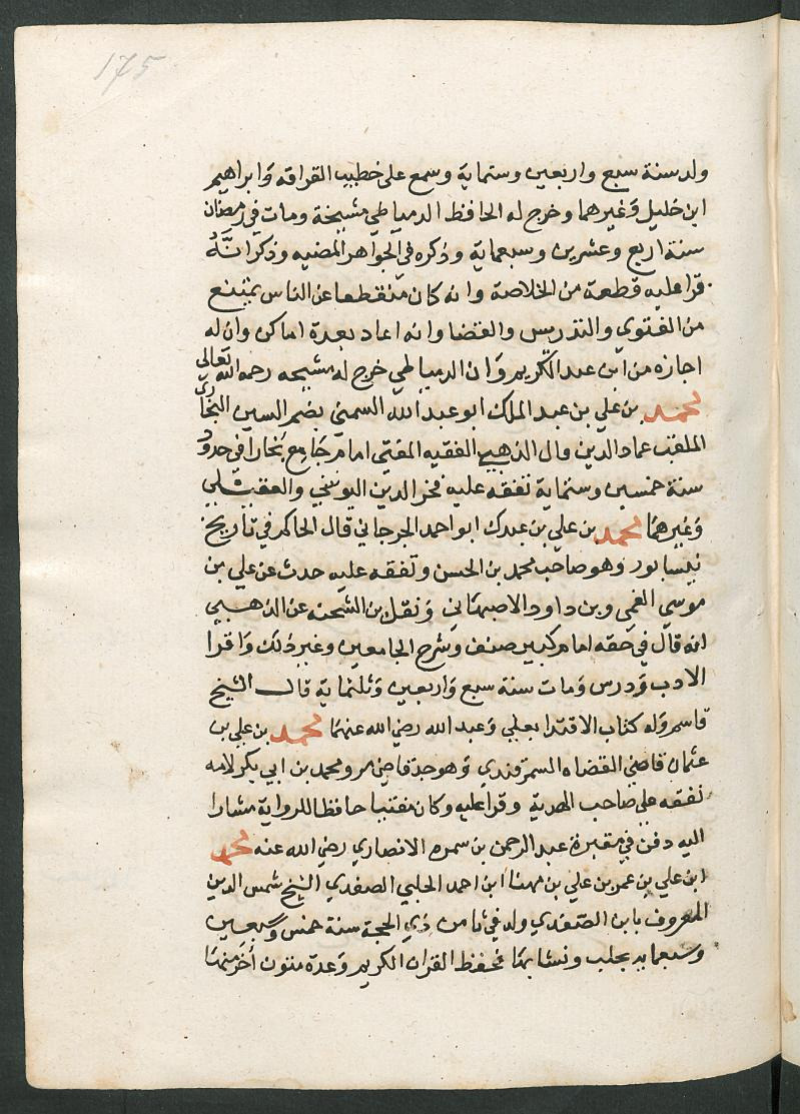 175
ولد سنة سبع واربعين وستماية وسمع على خطيب القرافه وابراهيم
ابن خليل وغيرهما وخرج له الحافظ الدمياطي مشيخة ومات في رمضان
سنة اربع وعشرين وسبعماية وذكره في الجواهر المضيه وذكر انه
قرا عليه قطعة من الخلاصة وانه كان منقطعا عن الناس يمتنع
من الفتوى والتدريس والقضا وانه اعاد بعدة اماكن وان له
اجازه من ابن عبد الكريم وان الدمياطي خرج له مشيخه رحمه الله تعالى
محمد بن علي بن عبد الملك ابو عبد الله السمني بضم السين البخاري
الملقب عماد الدين قال الذهبي الفقيه المفتي امام جامع بخارا في حدود
سنة خمسين وستماية تفقه عليه فخر الدين
وغيرهما محمد بن علي بن عبدك ابو احمد الجرجاني قال الحاكم في تاريخ
نيسابور وهو صاحب محمد بن الحسن وتفقه عليه حدث عن علي بن
موسي القمي وبن داود الاصبهاني ونقل بن الشحنه عن الذهبي
انه قال في حقه امام كبير صنف وشرح الجامعين وغير ذلك واقرا
الادب ودرس ومات سنة سبع واربعين وثلثماية قال الشيخ
قاسم وله كتاب الاقتدا بعلي وعبد الله رضي الله عنهما محمد بن علي بن
عثمان قاضي القضاه السمرقندي وهو جد قاضي مرو محمد بن ابي بكر لامه
تفقه على صاحب الهداية وقرا عليه وكان مفتيا حافظا للرواية مشارا
اليه دفن في مقبرة عبد الرحمن بن سمره الانصاري رضي الله عنه محمد
ابن علي بن عمر بن علي بن مهنا ابن احمد الحلبي الصفدي الشيخ شمس الدين
المعروف بابن الصفدي ولد في ثامن ذي الحجة سنة خمس وسبعين
وسبعمايه بحلب ونشا بها فحفظ القران الكريم وعدة متون اخر منها